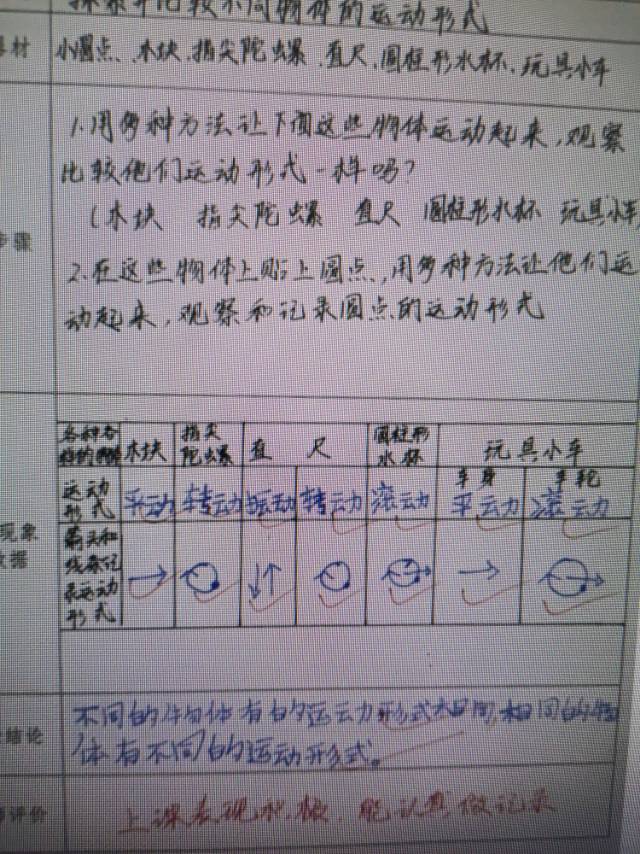 探索并比较不同物体的运动形式
材 小圆点、木块、指尖陀螺、直尺、圆柱形水杯、玩具小车
1.用多种方法让下面这些物体运动起来,观察
比较他们运动形式一样吗?
(木块 指尖陀螺 直尺 圆柱形水杯 玩具小车
步骤
2.在这些物体上贴上圆点,用多种方法让他们运
动起来,观察和记录圆点的运动形式
各种各 木块 指尖 直尺 圆柱形 玩具小车
陀螺 水杯
车身 车轮
运动 平动 转动 振动 转动 滚动 平动 滚动
形式
现象
箭头和
线条记
录运动
形式
不同的物体有的运动形式相同,相同的物
结论
体有不同的运动形式。
评价 上课表现积极,能认真做记录